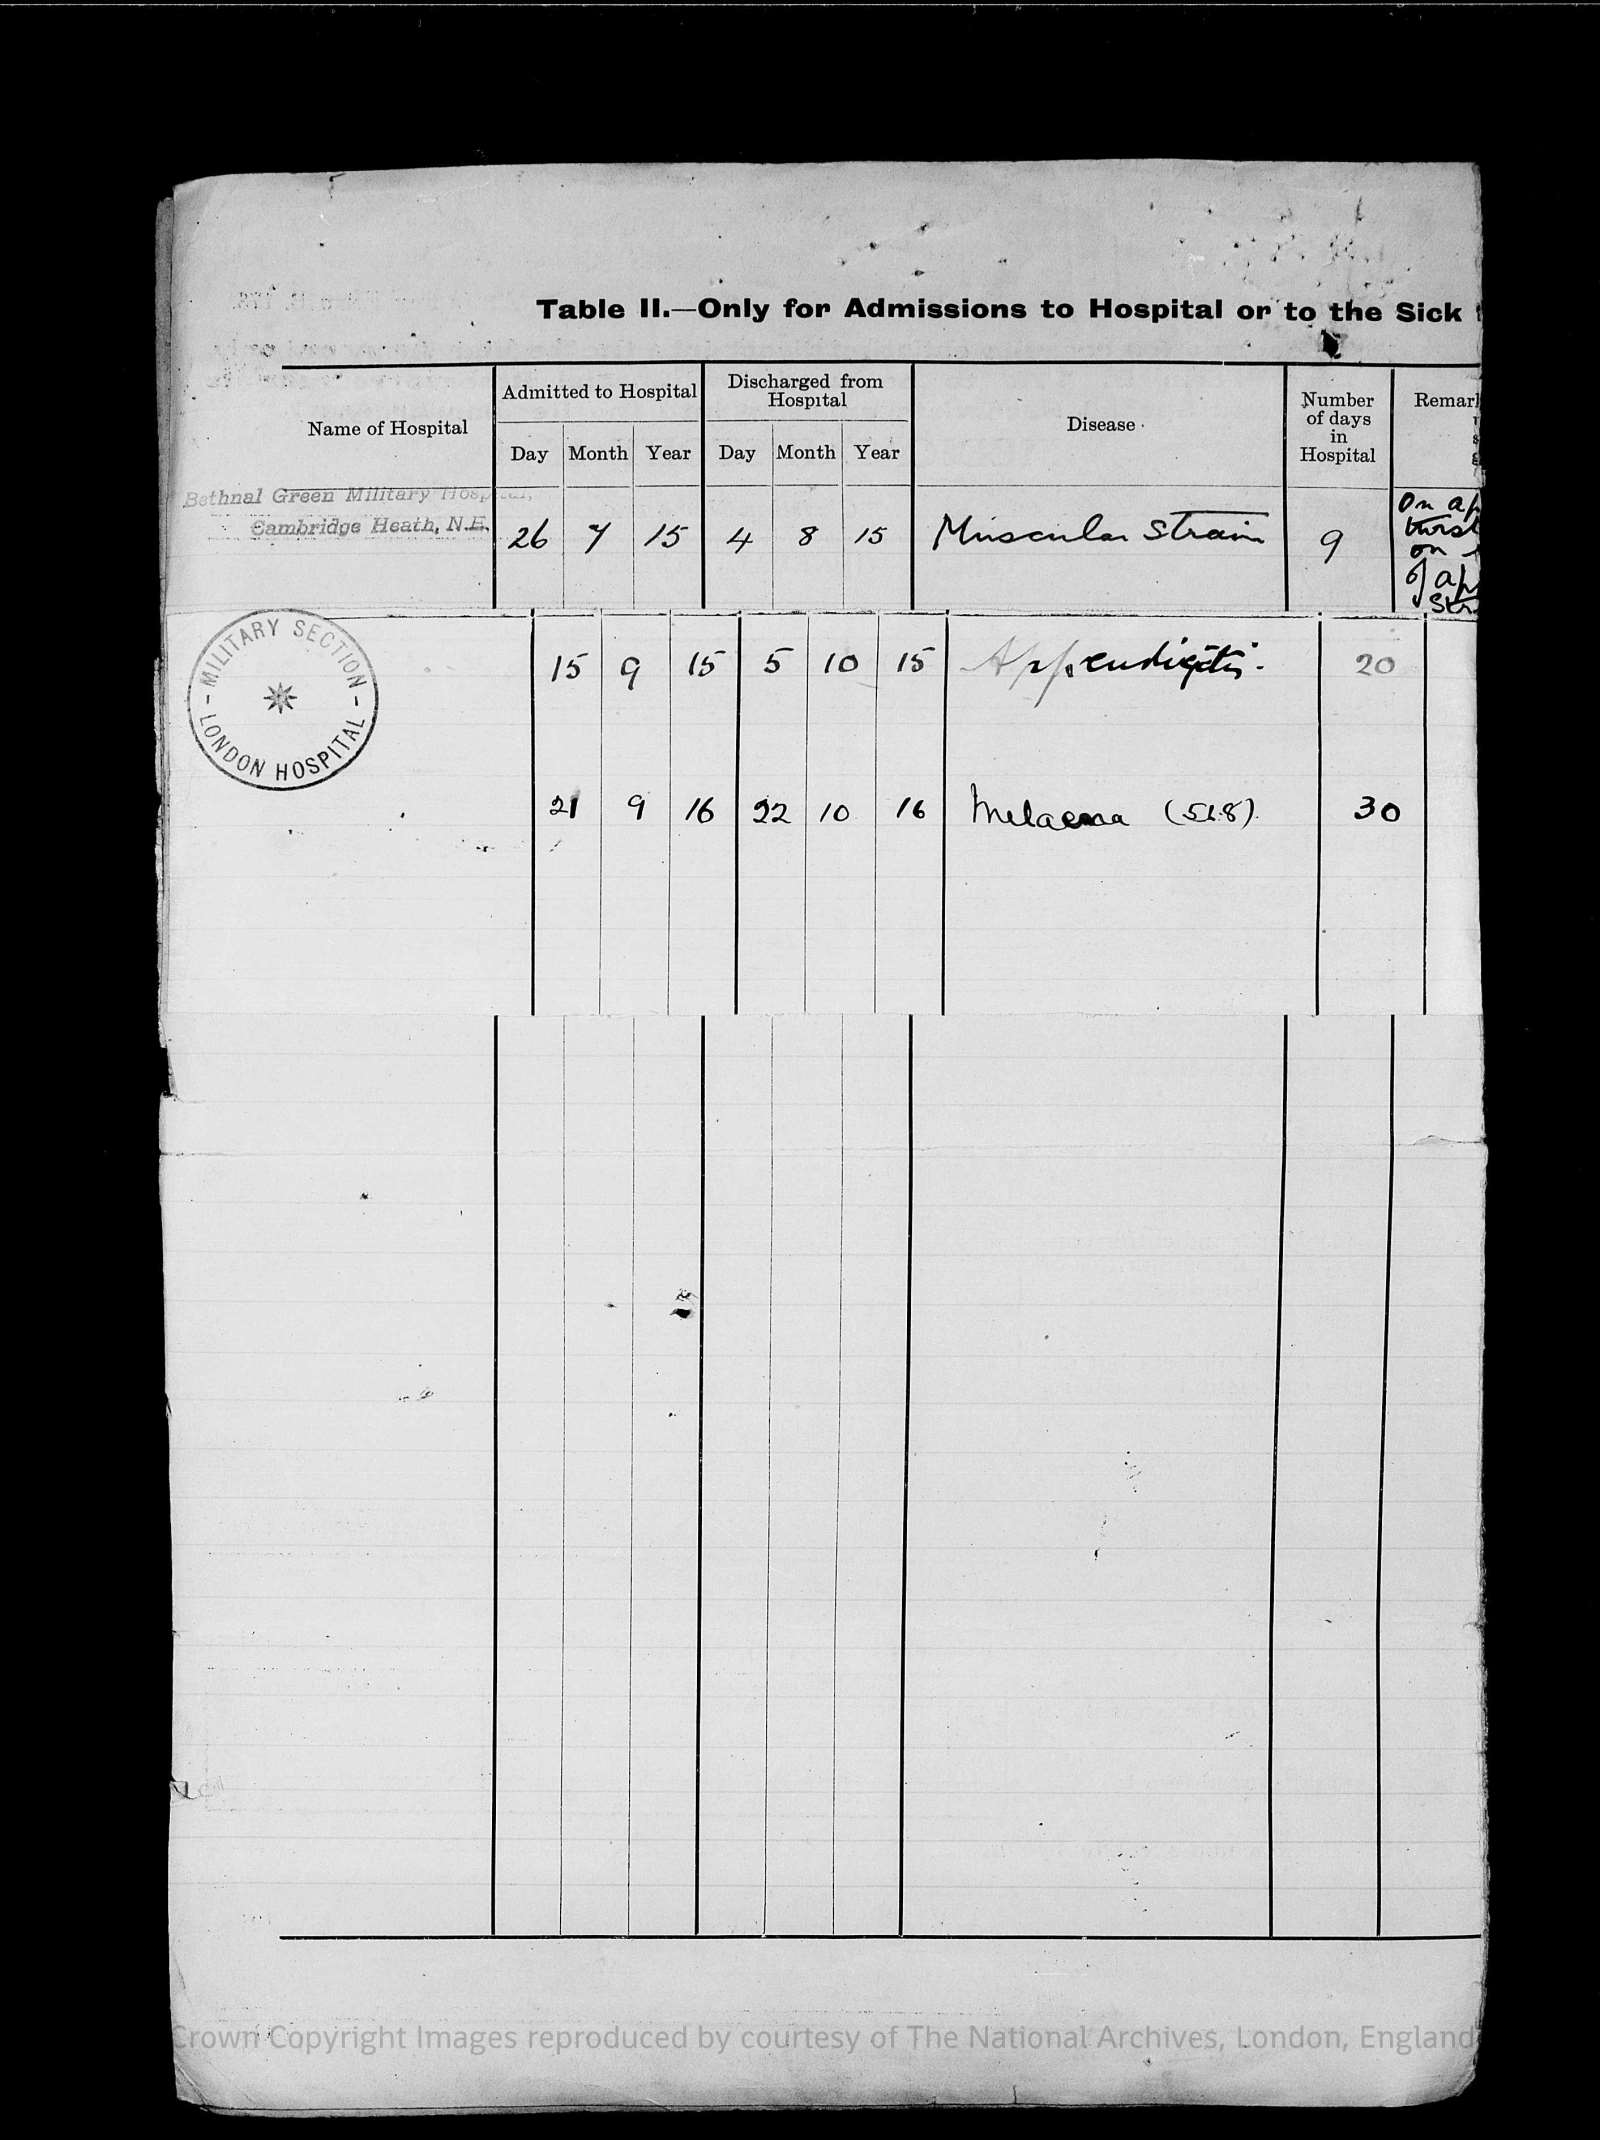 Table II.—Only for Admissions to Hospital or to the Sick
Name of Hospital
Admitted to Hospital
Discharged from
Hospital
Disease
Number
of days
in
Hospital
Remar
Day Month Year Day Month Year
Bethnal Green Military Hospital,
Cambridge Heath, N.E. 26 7 15 4 8 15 Muscular Strain 9
On ap
on
of ap
Str
MILITARY SECTION
LONDON HOSPITAL
15 9 15 5 10 15 Appendicitis. 20
21 9 16 22 10 16 Melaena (518). 30
Crown Copyright Images reproduced by courtesy of The National Archives, London, England